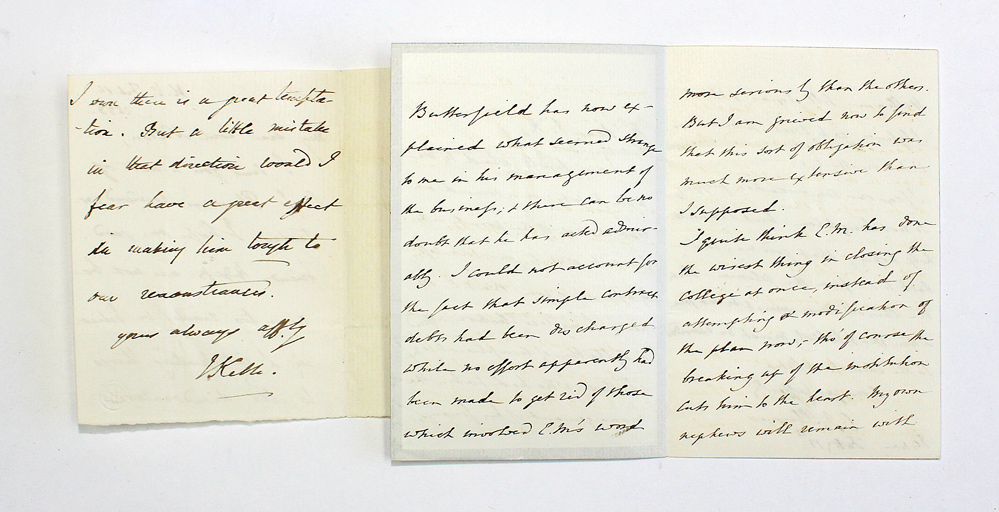 I own there is a great tempta-
-tion. But a little mistake
in that direction would I
fear have a great effect
in making him tough to
our remonstrances.
yours always affly
J Keble.
Butterfield has now ex-
plained what seemed strange
to me in his management of
the business; & there can be no
doubt that he has acted admir-
ably. I could not account for
the fact that simple contract
debts had been discharged
while no effort apparently had
been made to get rid of those
which involved E.M's word
more seriously than the others.
But I am grieved now to find
that this sort of obligation was
much more extensive than
I supposed.
I quite think E.M. has done
the wisest thing in closing the
College at once, instead of
attempting a modification of
the plan now; tho' of course the
breaking up of the institution
cuts him to the heart. My own
nephews will remain with